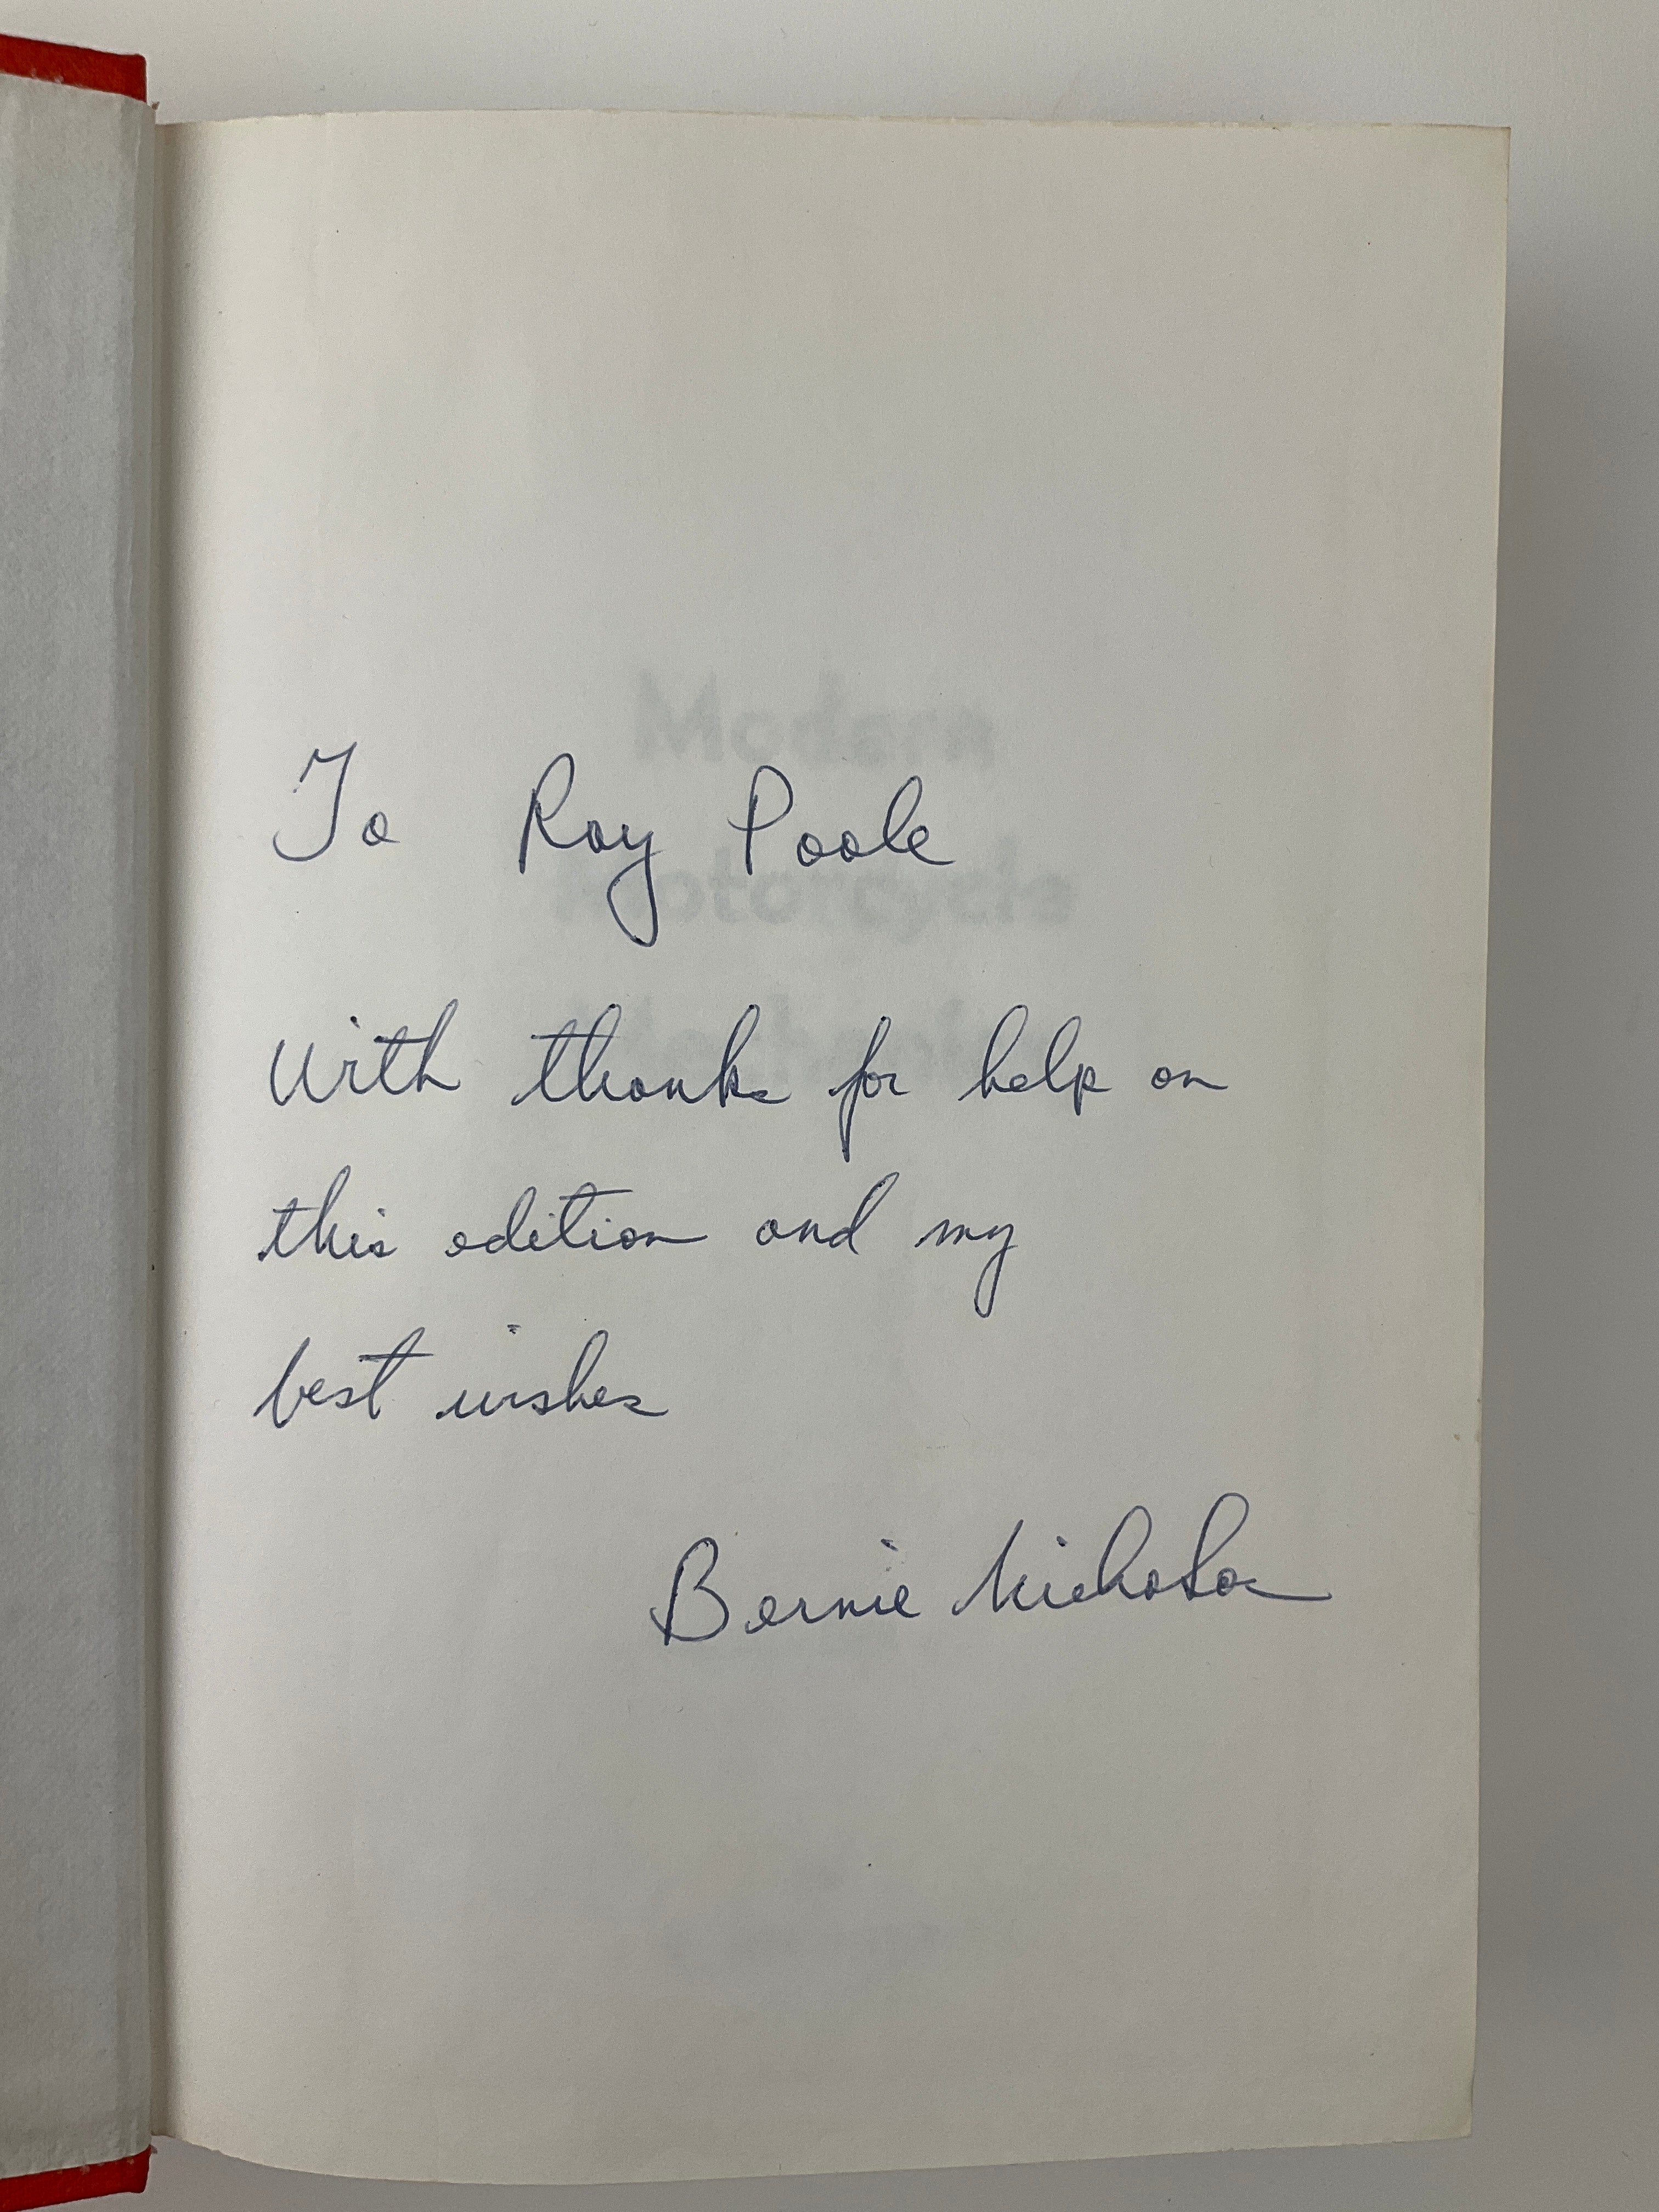 Modern
To Roy Poole
Motorcycle
With thanks for help on
this edition and my
best wishes
Bernie Nicholson